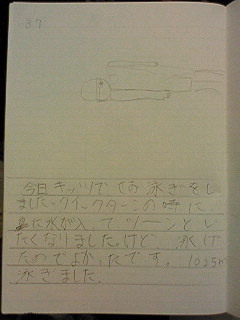 37
今日キッツで(お泳ぎをし
ました。クイックターンの時に、
鼻に水が入ってツーンとし
たくなりましたけど、泳げ
たのでよかったです。1025m
泳ぎました。